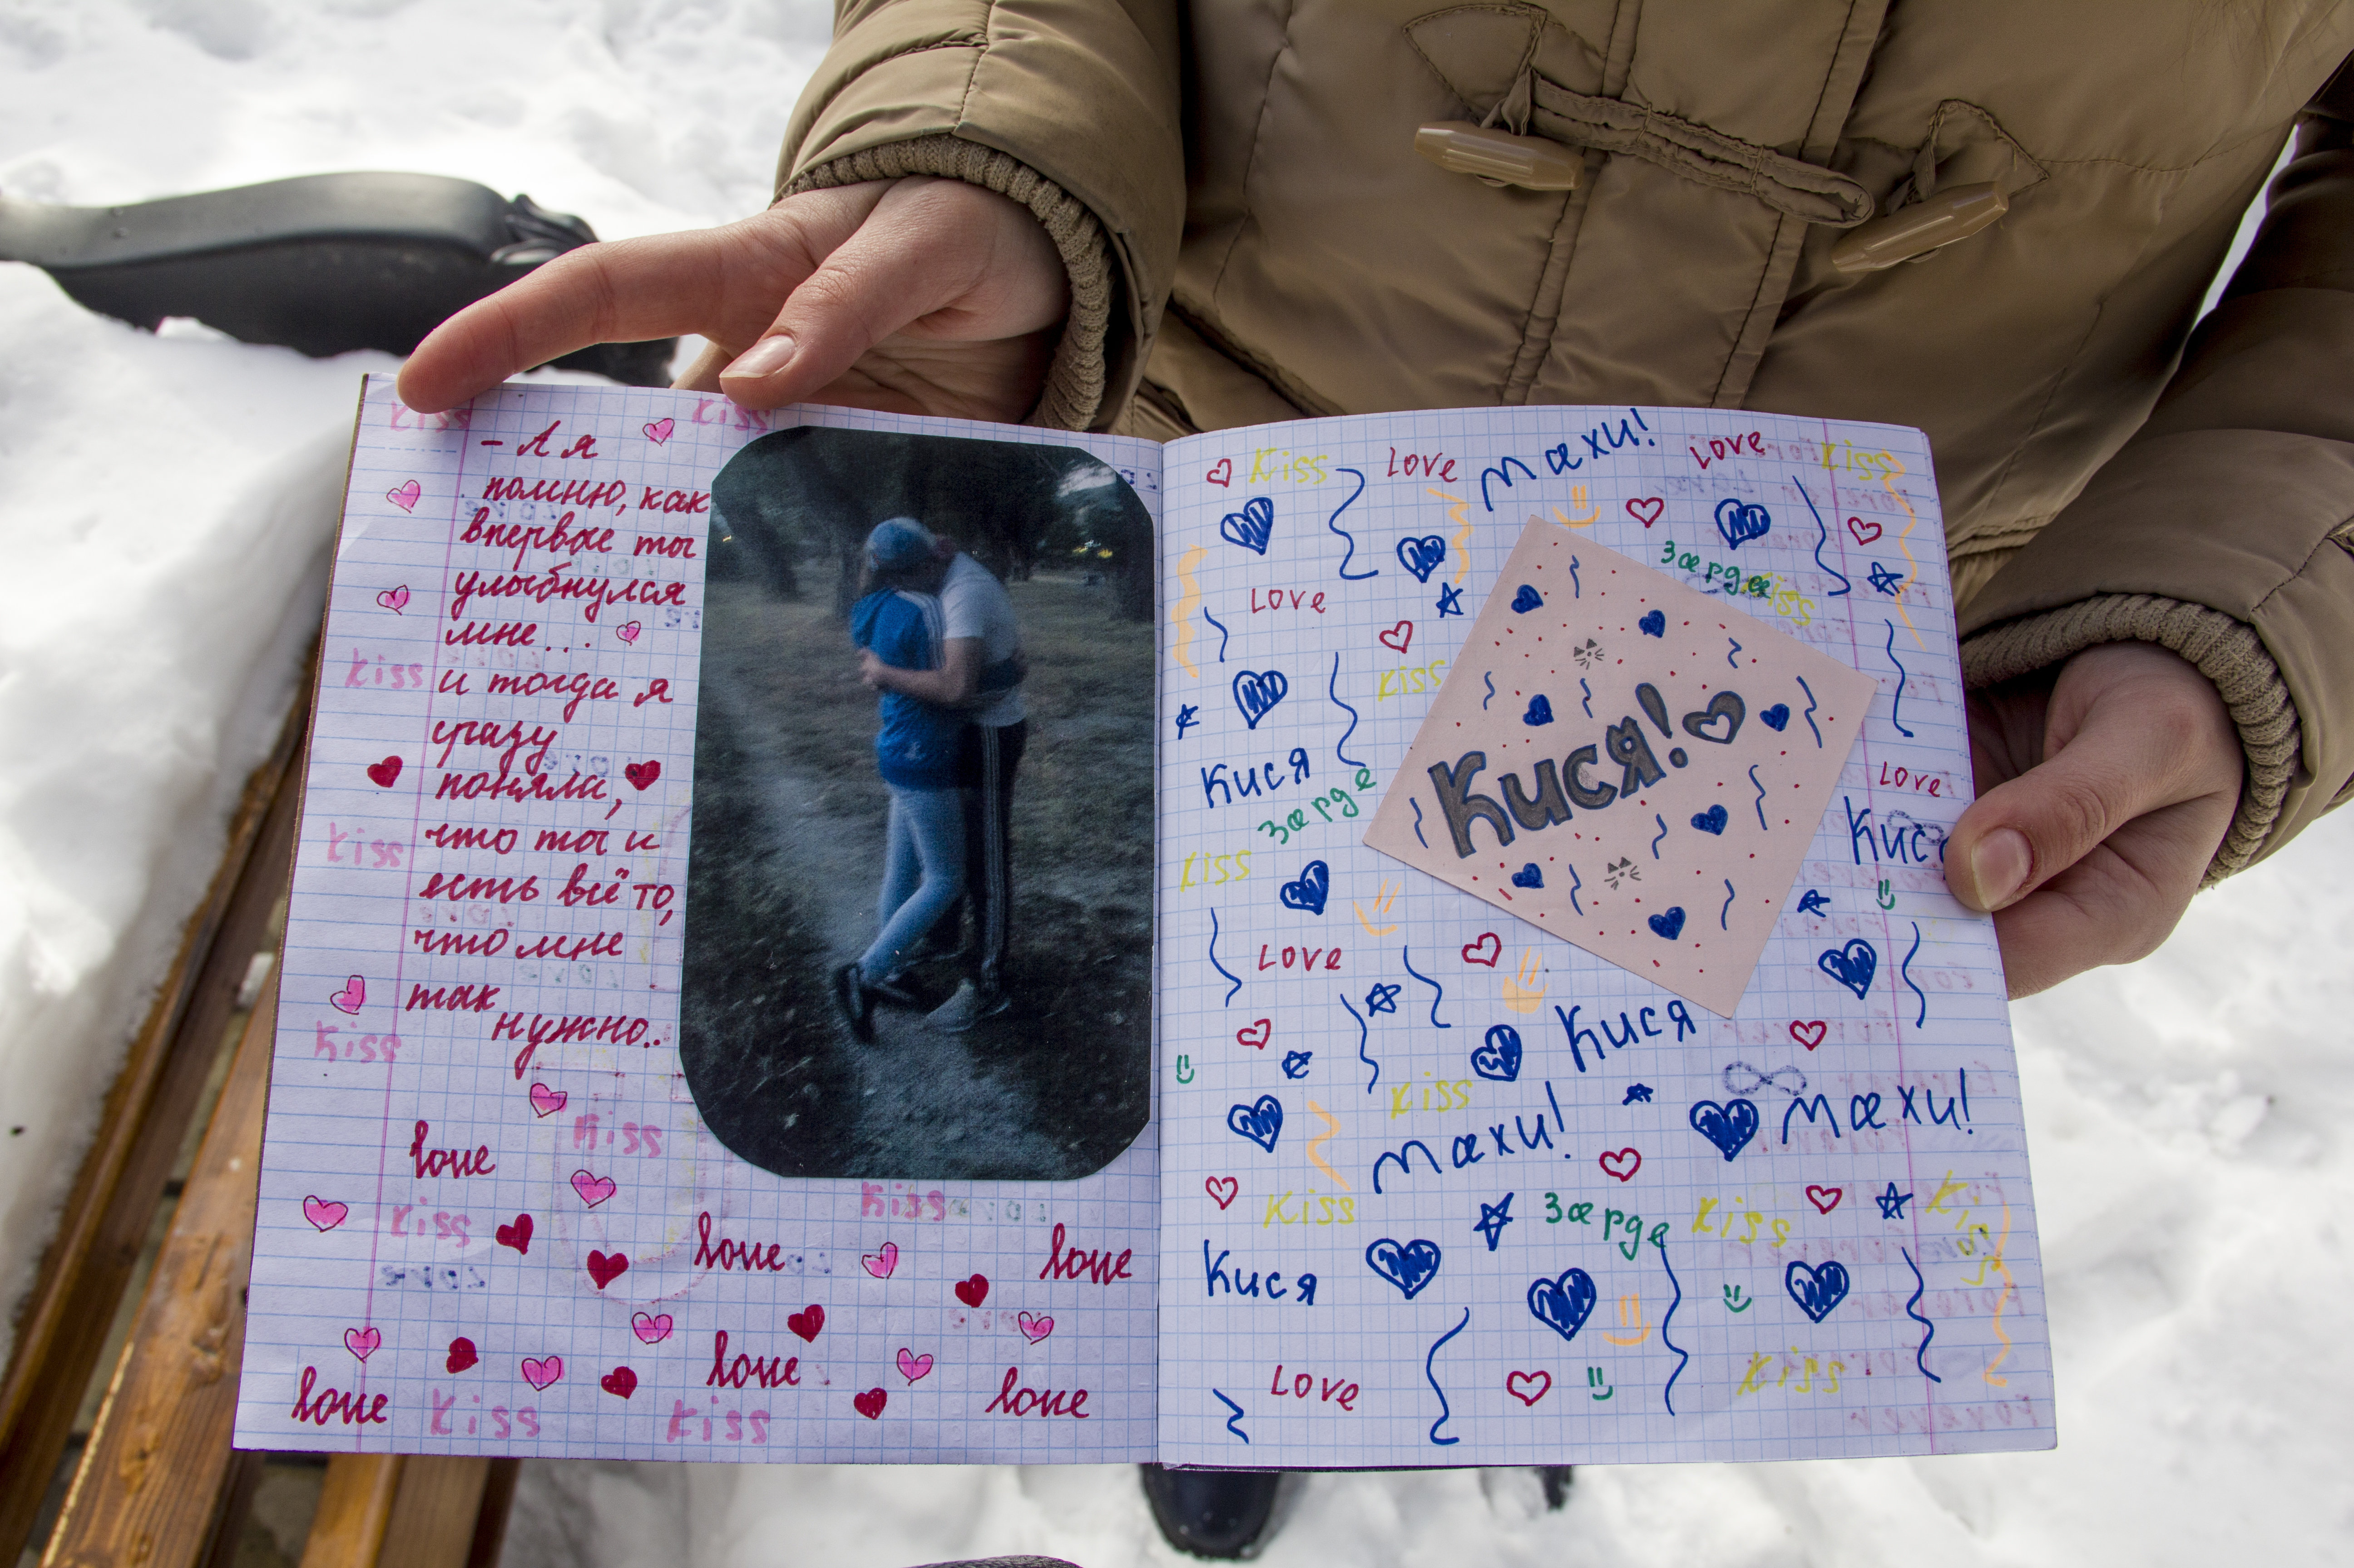 kiss
kiss
- А я
помню, как
впервые ты
улыбнулся
мне...
kiss
и тогда я
сразу
поняла,
kiss
что ты и
есть всё то,
что мне
так
kiss
нужно..
kiss
love
kiss
kiss
love
love
love
love
love
love
kiss
kiss
kiss
love
махи!
love
kiss
зарде
kiss
love
kiss
Кися!
Кися
зарде
love
Кис
kiss
love
Кися
kiss
махи!
махи!
kiss
зарде
kiss
kiss
Кися
love
kiss